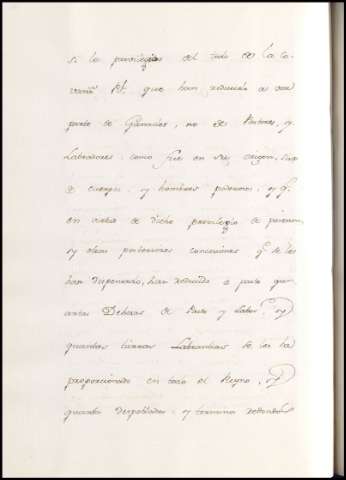 si los privilegios del todo de la Ca-
vaña Rl. que han reducido a ser
parte de Ganados, no de Pastores, y
Labradores, como fue en su origen, sino
de cuerpos, y hombres poderosos, y q.
en virtud de dicho privilegio de
y otras posteriores concesiones q. se les
han dispensado, han reducido a pasto quantas
Dehesas de Pasto y Labor, y
quantas tierras Labrantias se les ha
proporcionado en todo el Reyno, y
quantos despoblados, y terminos redondos